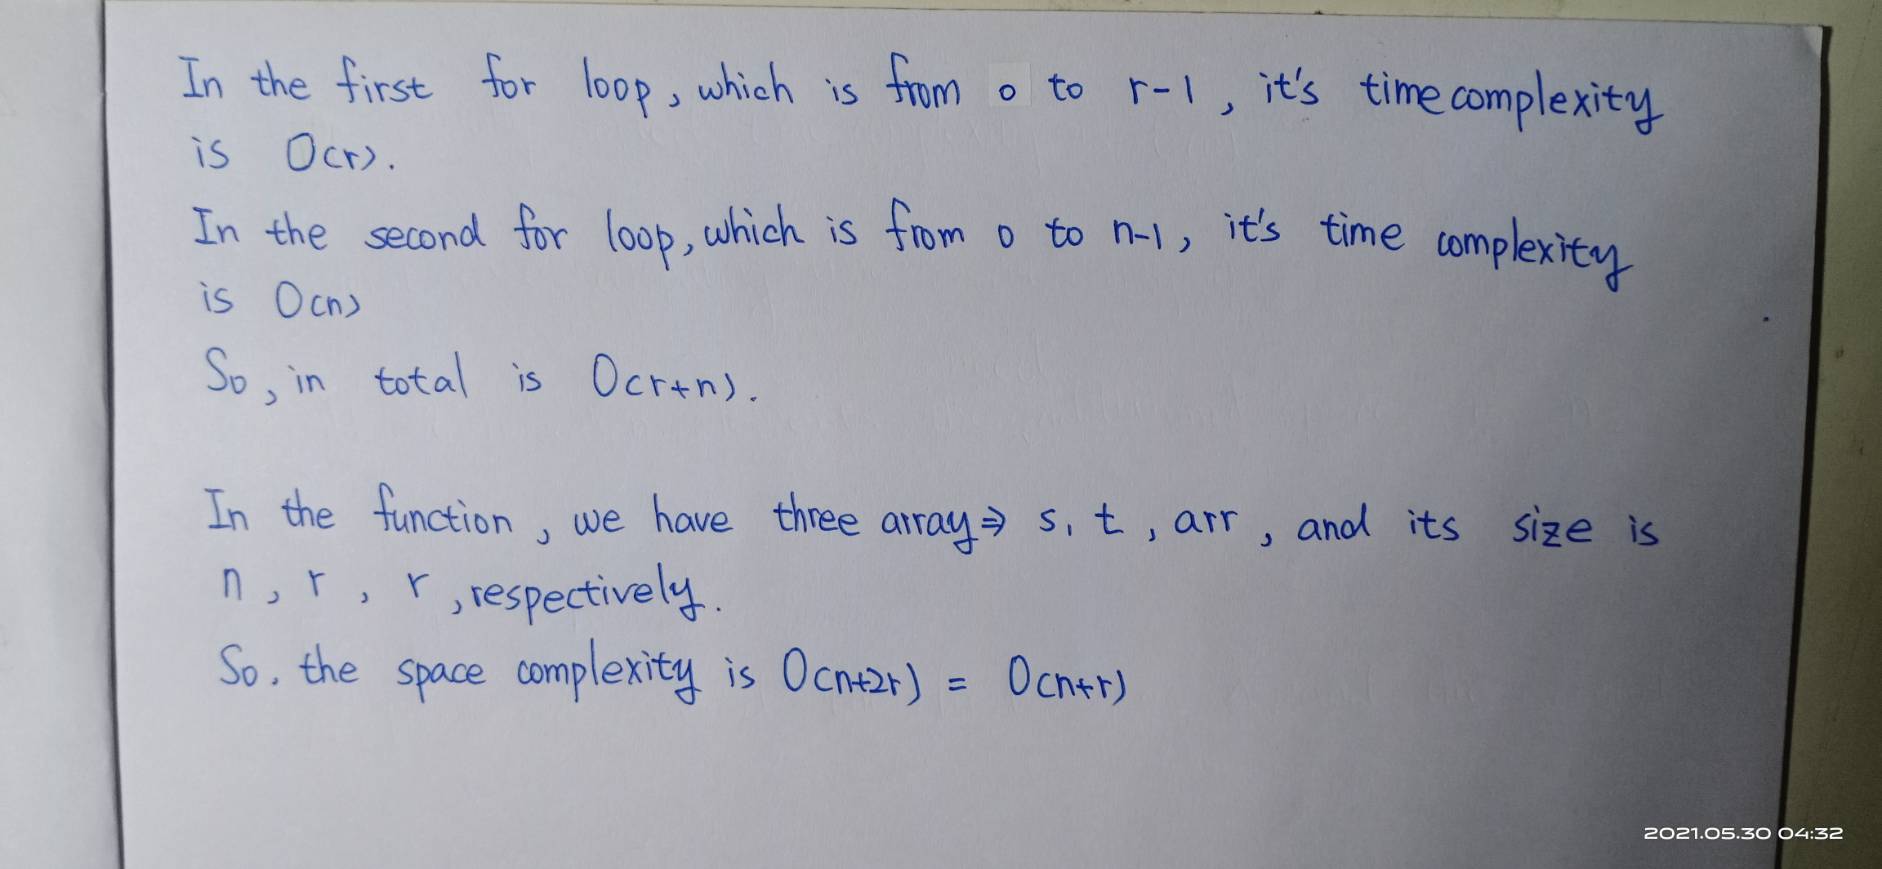 In the first for loop, which is from 0 to r-1, it's time complexity
is O(r).
In the second for loop, which is from 0 to n-1, it's time complexity
is O(n)
So, in total is O(r+n).
In the function, we have three array⇒ s, t, arr, and its size is
n, r, r, respectively.
So, the space complexity is O(n+2r) = O(n+r)
2021.05.30 04:32